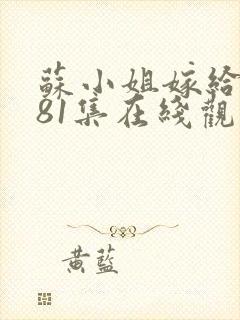 蘇小姐嫁給
81集在綫觀
黃藍